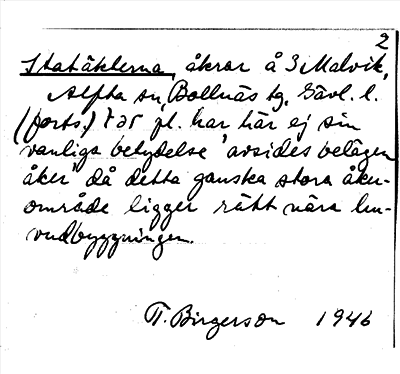 2
Itatäkterna, åkrar å 3 Malvik,
Alfta sn, Bollnäs tg, Gävl. l.
(forts.) t är pl. har här ej sin
vanliga betydelse 'avsides belägen
åker då detta ganska stora åker-
område ligger rätt nära hu-
vudbyggningen.
T. Birgerson 1946